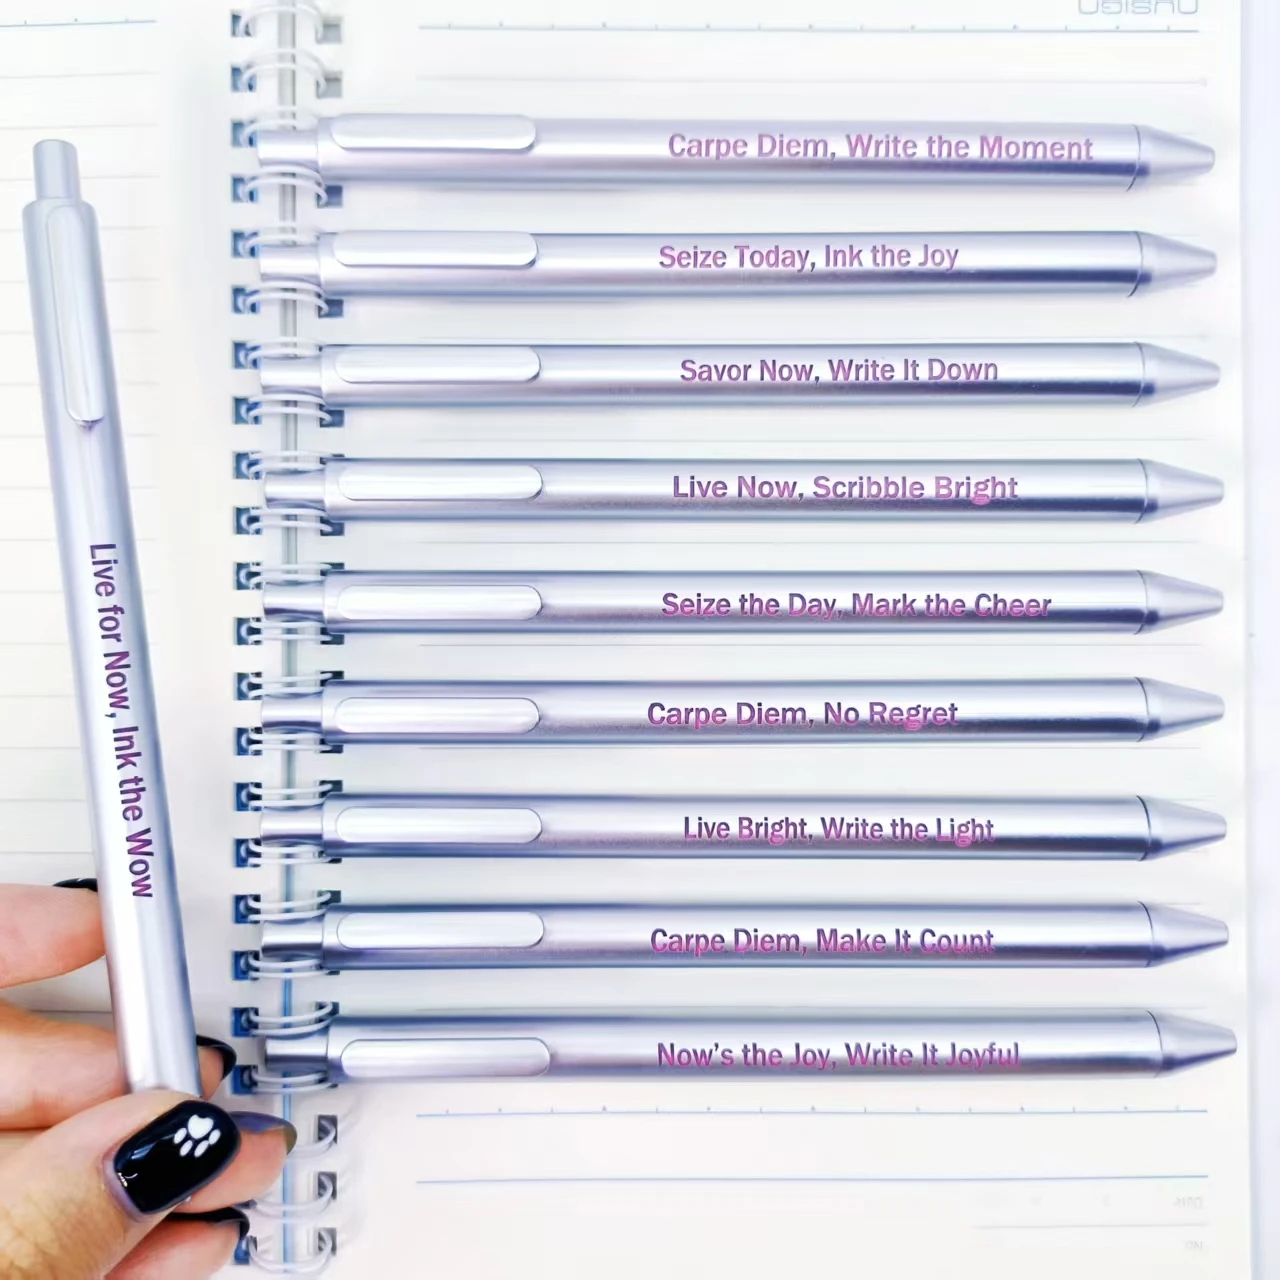 Carpe Diem, Write the Moment
Seize Today, Ink the Joy
Savor Now, Write It Down
Live Now, Scribble Bright
Seize the Day, Mark the Cheer
Carpe Diem, No Regret
Live Bright, Write the Light
Carpe Diem, Make It Count
Now's the Joy, Write It Joyful
Live for Now, Ink the Wow